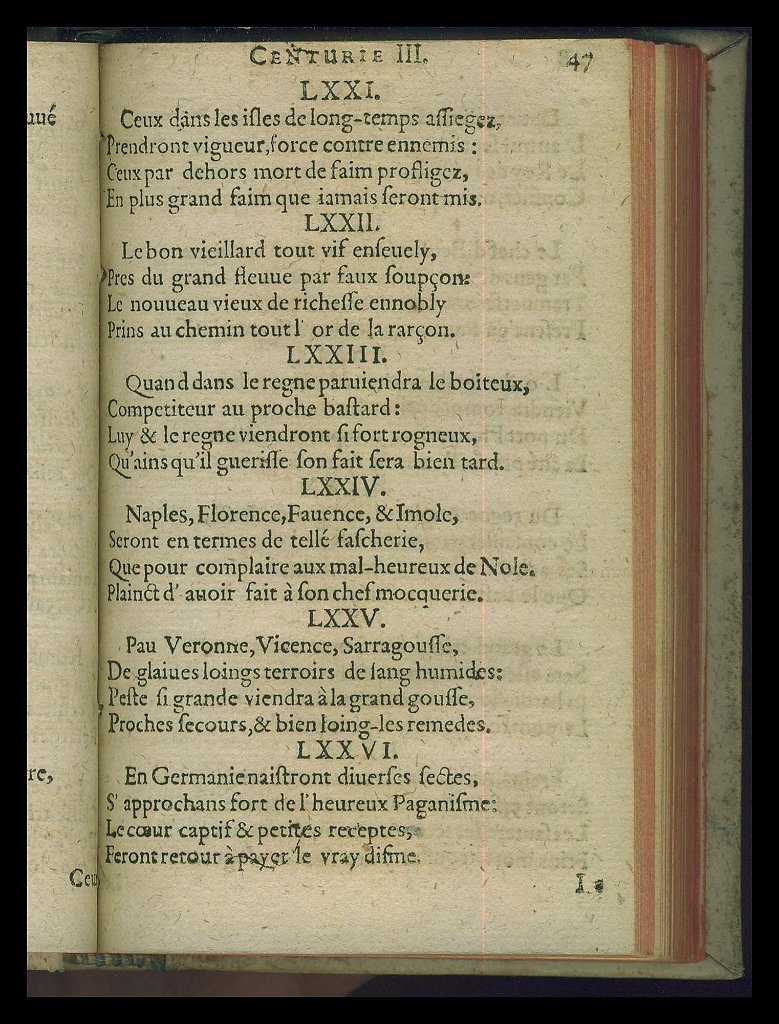 CENTURIE III. 47
LXXI.
Ceux dans les iſles de long-temps aſſiegez,
Prendront vigueur, force contre ennemis :
Ceux par dehors mort de faim profligez,
En plus grand faim que iamais ſeront mis.
LXXII.
Le bon vieillard tout vif enſeuely,
Pres du grand fleuue par faux ſoupçon:
Le nouueau vieux de richeſſe ennobly
Prins au chemin tout l' or de la rarçon.
LXXIII.
Quand dans le regne paruiendra le boiteux,
Competiteur au proche baſtard :
Luy & le regne viendront ſi fort rogneux,
Qu'ains qu'il gueriſſe ſon fait ſera bien tard.
LXXIV.
Naples, Florence, Fauence, & Imole,
Seront en termes de tellé faſcherie,
Que pour complaire aux mal-heureux de Nole.
Plainct d' auoir fait à ſon chef mocquerie.
LXXV.
Pau Veronne, Vicence, Sarragouſſe,
De glaiues loings terroirs de ſang humides:
Peſte ſi grande viendra à la grand gouſſe,
Proches ſecours, & bien loing-les remedes.
LXXVI.
En Germanie naiſtront diuerſes ſectes,
S' approchans fort de l' heureux Paganiſme:
Le cœur captif & petites receptes,
Feront retour à payer le vray diſme.
uué
re,
Ceux